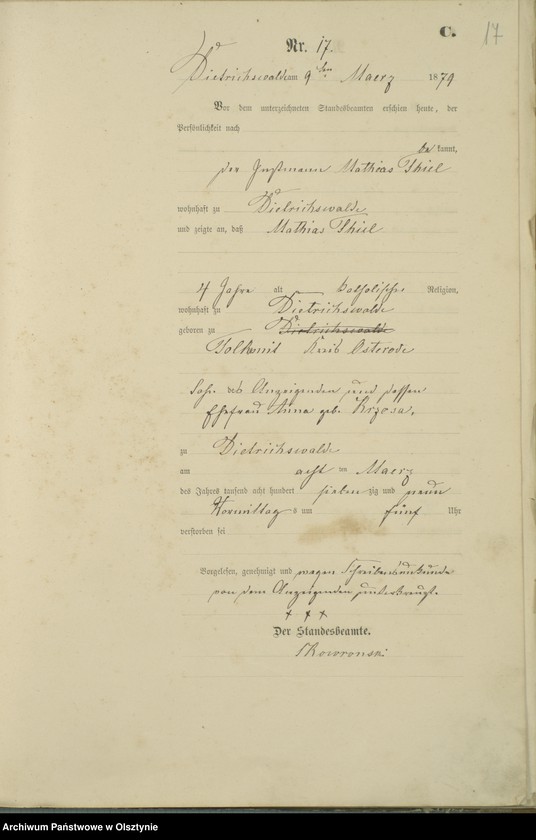 C.
17
Nr. 17.
Dietrichswalde am 9ten Maerz 1879
Vor dem unterzeichneten Standesbeamten erschien heute, der
Persönlichkeit nach
be kannt,
der Instmann Mathias Thiel
wohnhaft zu Dietrichswalde
und zeigte an, daß Mathias Thiel
4 Jahre alt katholischer Religion,
wohnhaft zu Dietrichswalde
geboren zu Dietrichswalde
Kreis Osterode
Sohn des Anzeigenden und dessen
Ehefrau Anna geb. Krzosa,
zu Dietrichswalde
am acht ten Maerz
des Jahres tausend acht hundert sieben zig und neun
Vormittag s um fünf Uhr
verstorben sei
Vorgelesen, genehmigt und wegen Schreibensunkunde
von dem Anzeigenden unterkreuzt.
+ + +
Der Standesbeamte.
Skowronski
Archiwum Państwowe w Olsztynie